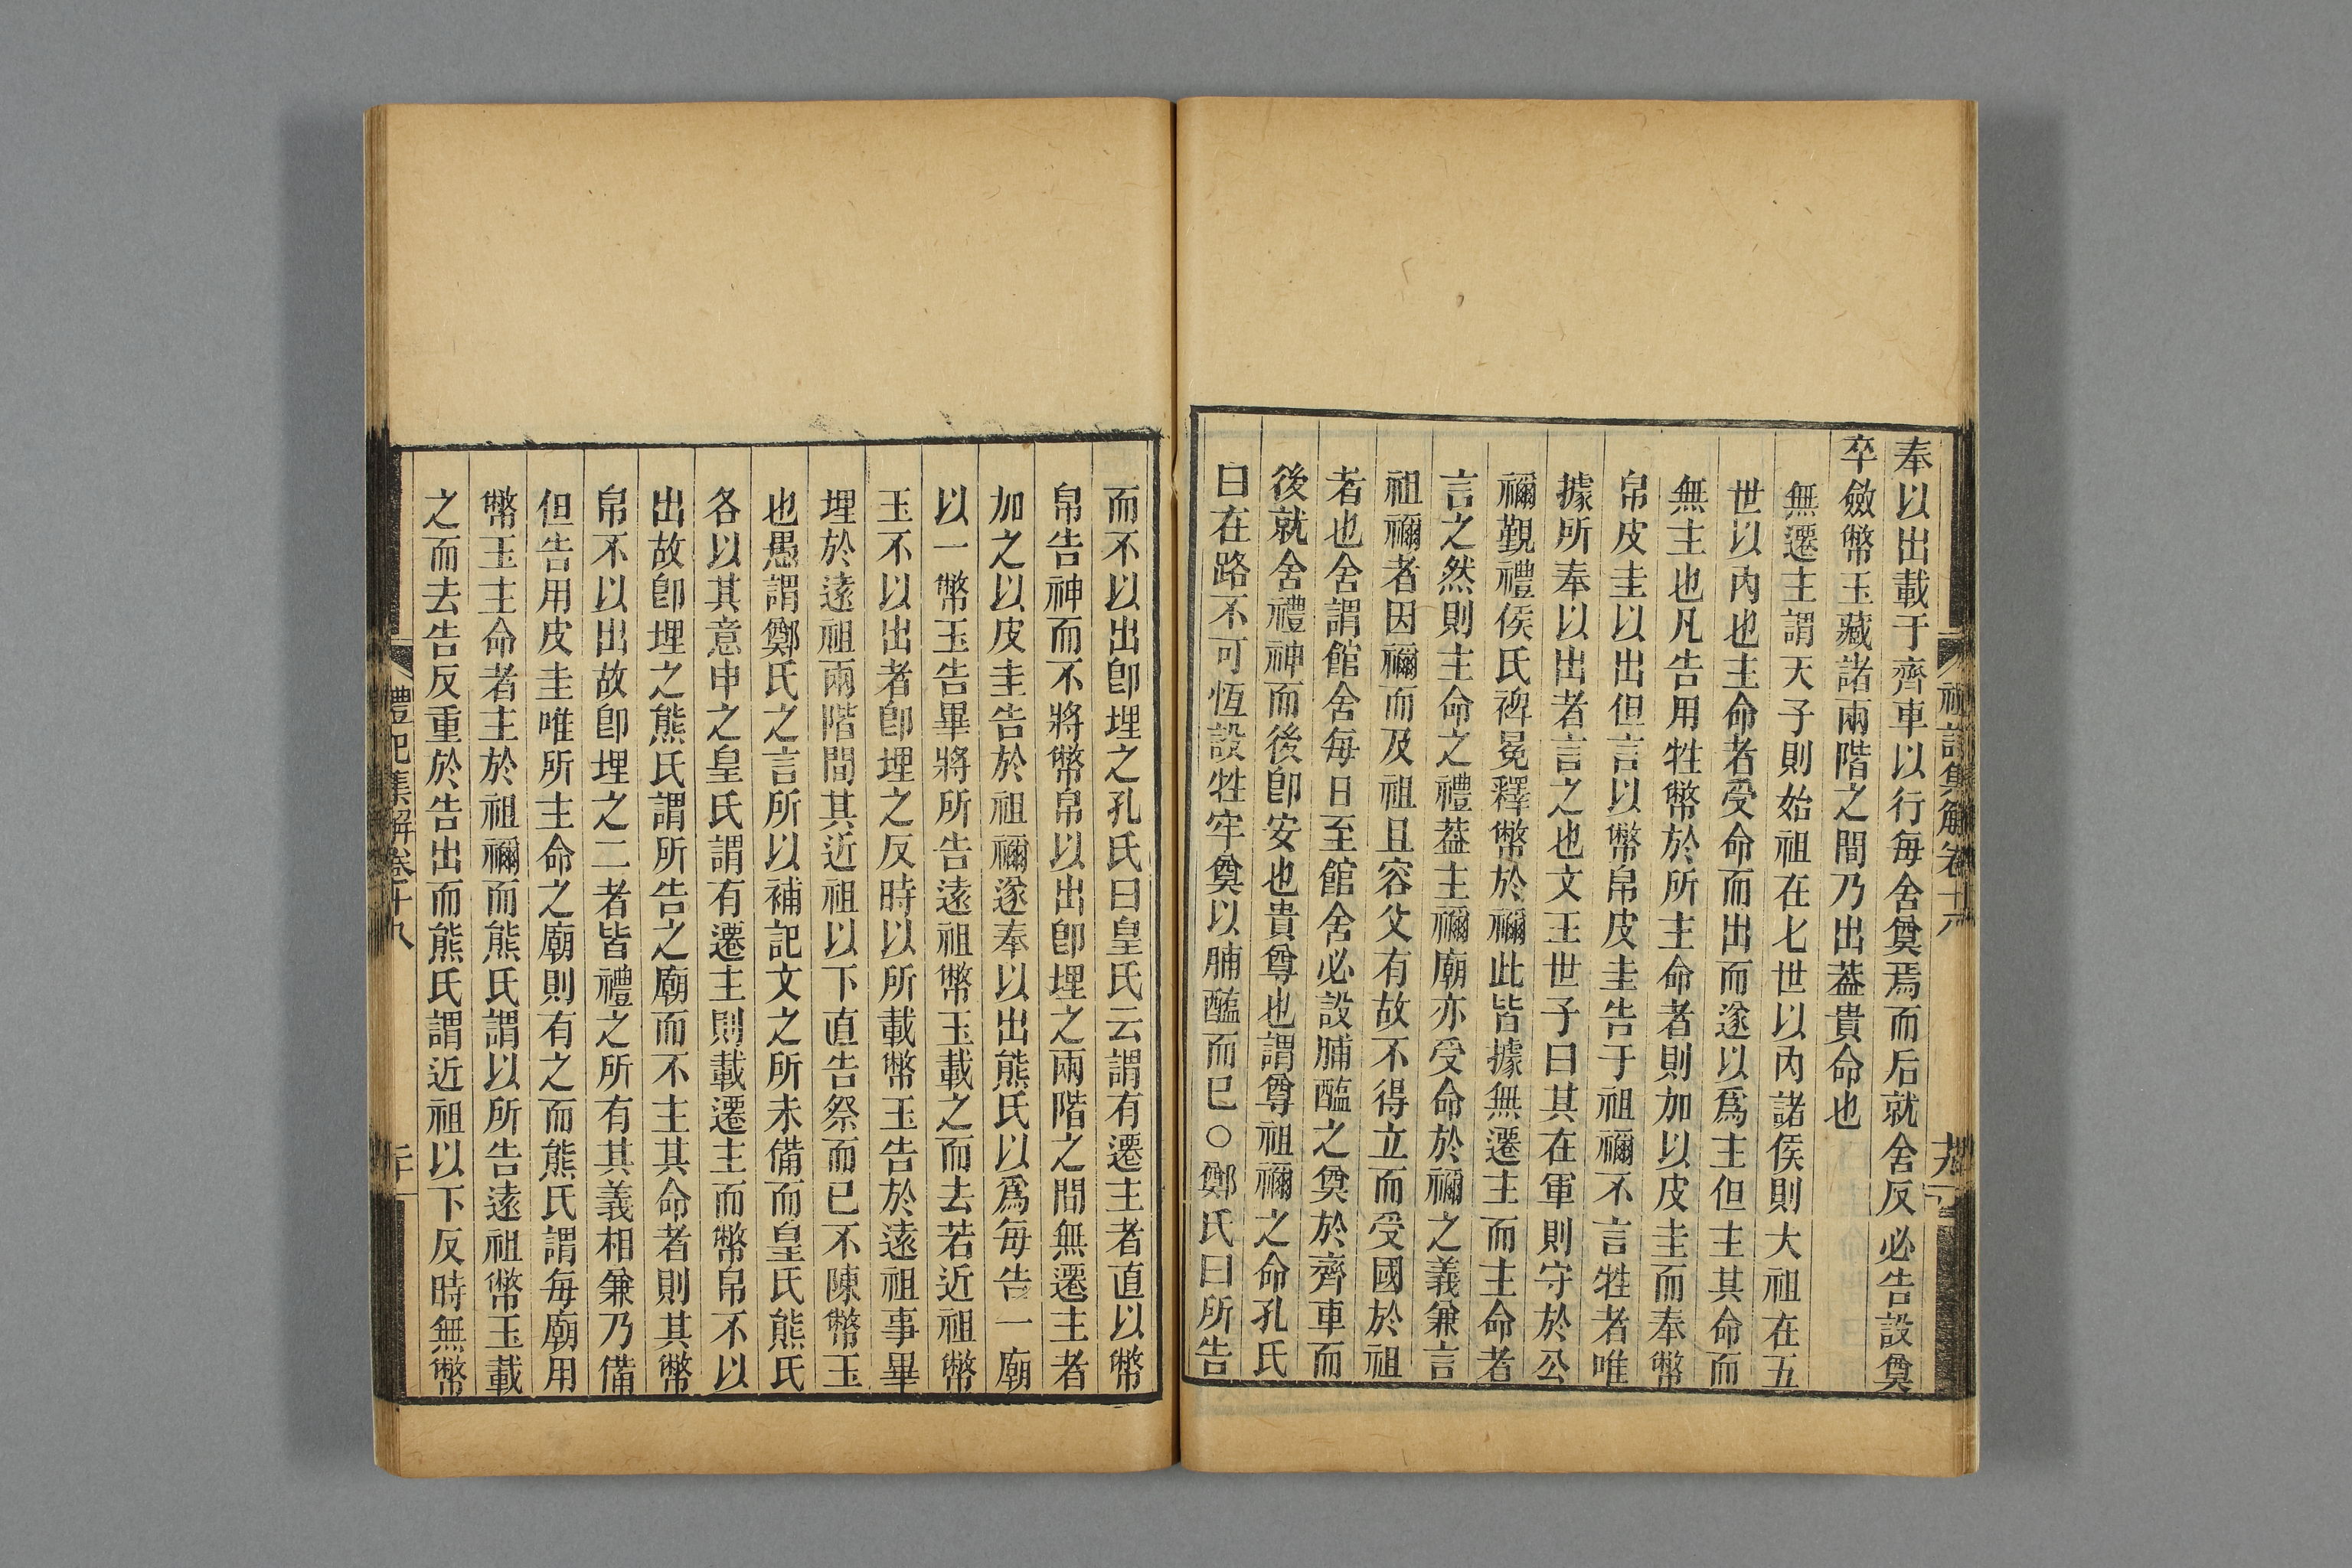 奉以出載于齊車以行每舍奠焉而后就舍反必告設奠
卒斂幣玉藏諸兩階之間乃出葢貴命也
無遷主謂天子則始祖在七世以內諸侯則大祖在五
世以內也主命者受命而出而遂以爲主但主其命而
無主也凡告用牲幣於所主命者則加以皮圭而奉幣
帛皮圭以出但言以幣帛皮圭告于祖禰不言牲者唯
據所奉以出者言之也文王世子曰其在軍則守於公
禰覲禮侯氏裨冕釋幣於禰此皆據無遷主而主命者
言之然則主命之禮葢主禰廟亦受命於禰之義兼言
祖禰者因禰而及祖且容父有故不得立而受國於祖
者也舍謂館舍每日至館舍必設脯醢之奠於齊車而
後就舍禮神而後卽安也貴尊也謂尊祖禰之命孔氏
曰在路不可恆設牲牢奠以脯醢而已○鄭氏曰所告
而不以出卽埋之孔氏曰皇氏云謂有遷主者直以幣
帛告神而不將幣帛以出卽埋之兩階之間無遷主者
加之以皮圭告於祖禰遂奉以出熊氏以爲每告一廟
以一幣玉告畢將所告遠祖幣玉載之而去若近祖幣
玉不以出者卽埋之反時以所載幣玉告於遠祖事畢
埋於遠祖兩階間其近祖以下直告祭而已不陳幣玉
也愚謂鄭氏之言所以補記文之所未備而皇氏熊氏
各以其意申之皇氏謂有遷主則載遷主而幣帛不以
出故卽埋之熊氏謂所告之廟而不主其命者則其幣
帛不以出故卽埋之二者皆禮之所有其義相兼乃備
但告用皮圭唯所主命之廟則有之而熊氏謂每廟用
幣玉主命者主於祖禰而熊氏謂以所告遠祖幣玉載
之而去告反重於告出而熊氏謂近祖以下反時無幣
禮記集解卷十八